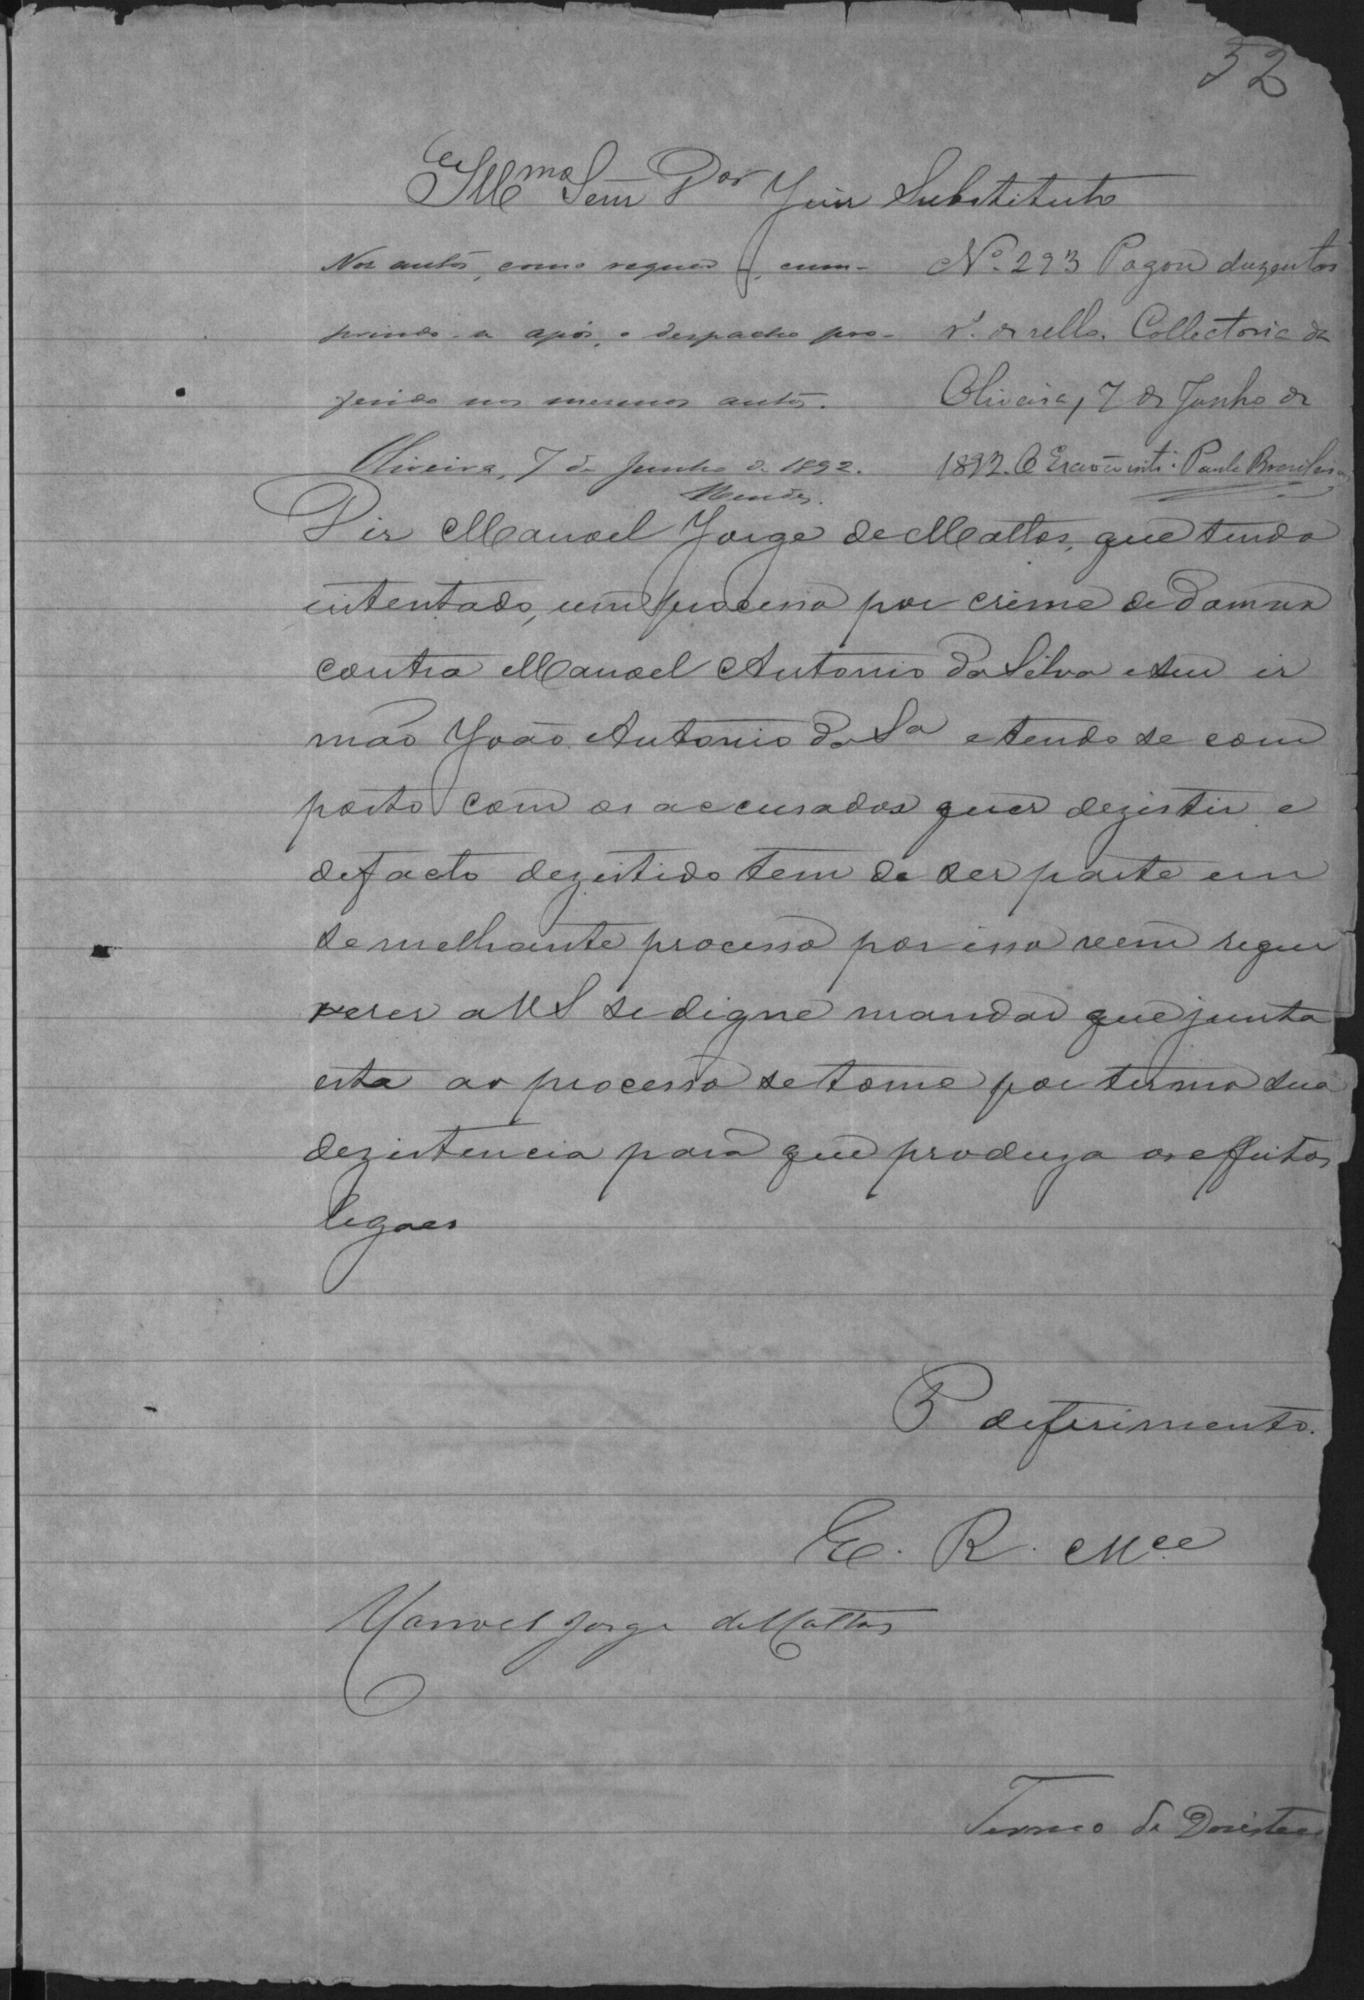 52
Illmo Senr Dor Juiz Substituto
Nos autos, como requer, cum-
prindo-a após, o despacho pro-
ferido nos mesmos autos.
Oliveira, 7 de Junho de 1892.
Mendes.
No. 293 Pagou duzentos
rs. de sello. Collectoria da
Oliveira, 7 de Junho de
1892. O Escrivão inti.
Diz Manoel Jorge de Mattos, que tendo
intentado, um processo por crime de damno
contra Manoel Antonio da Silva e seu ir
mão João Antonio da Sa e tendo se com
posto com os accusados quer dezistir e
de facto dezistido tem de ser parte em
semelhante processo por isso vem reque
rerer a VS se digne mandar que junta
esta ao processo se tome por termo sua
dezistencia para que produza os effeitos
legaes
P deferimento.
E. R. Mce
Manoel Jorge de Mattos
Termo de